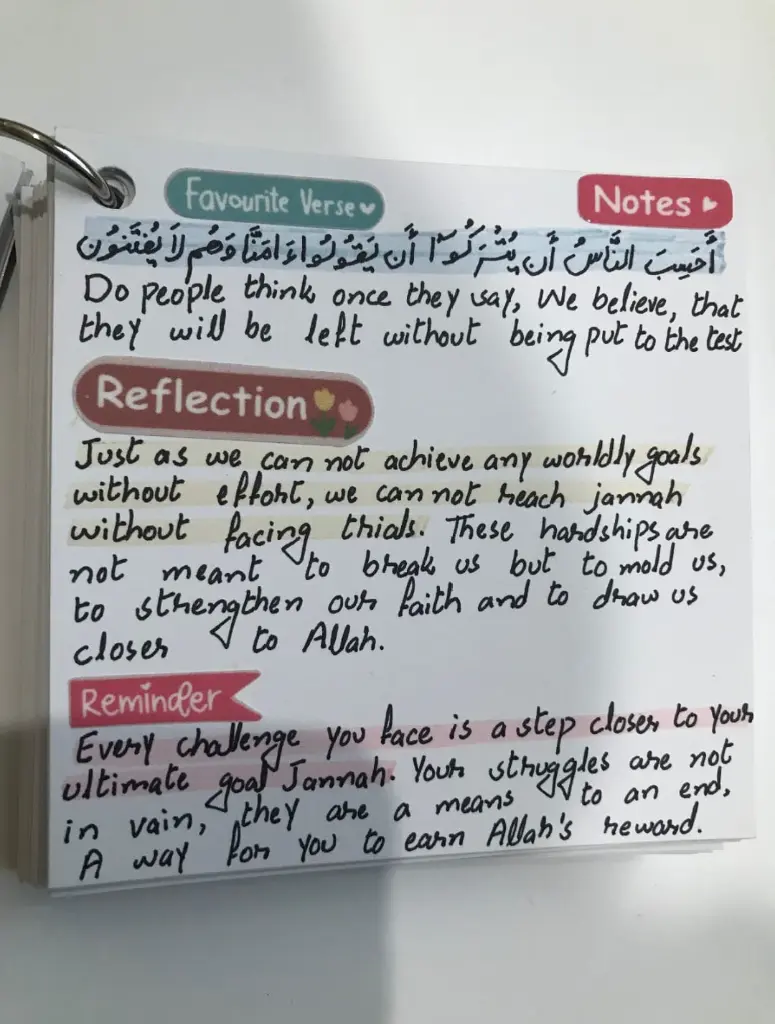 Favourite Verse
Notes
أَحَسِبَ النَّاسُ أَن يُتْرَكُوٓا أَن يَقُولُواءَامَنَّا وَهُم لَا يُفْتَنُون
Do people think once they say, We believe, that
they will be left without being put to the test
Reflection
Just as we can not achieve any worldly goals
without effort, we can not reach jannah
without facing trials. These hardships are
not meant to break us but to mold us,
to strengthen our faith and to draw us
closer to Allah.
Reminder
Every challenge you face is a step closer to your
ultimate goal Jannah. Your struggles are not
in vain, they are a means to an end,
A way for you to earn Allah's reward.